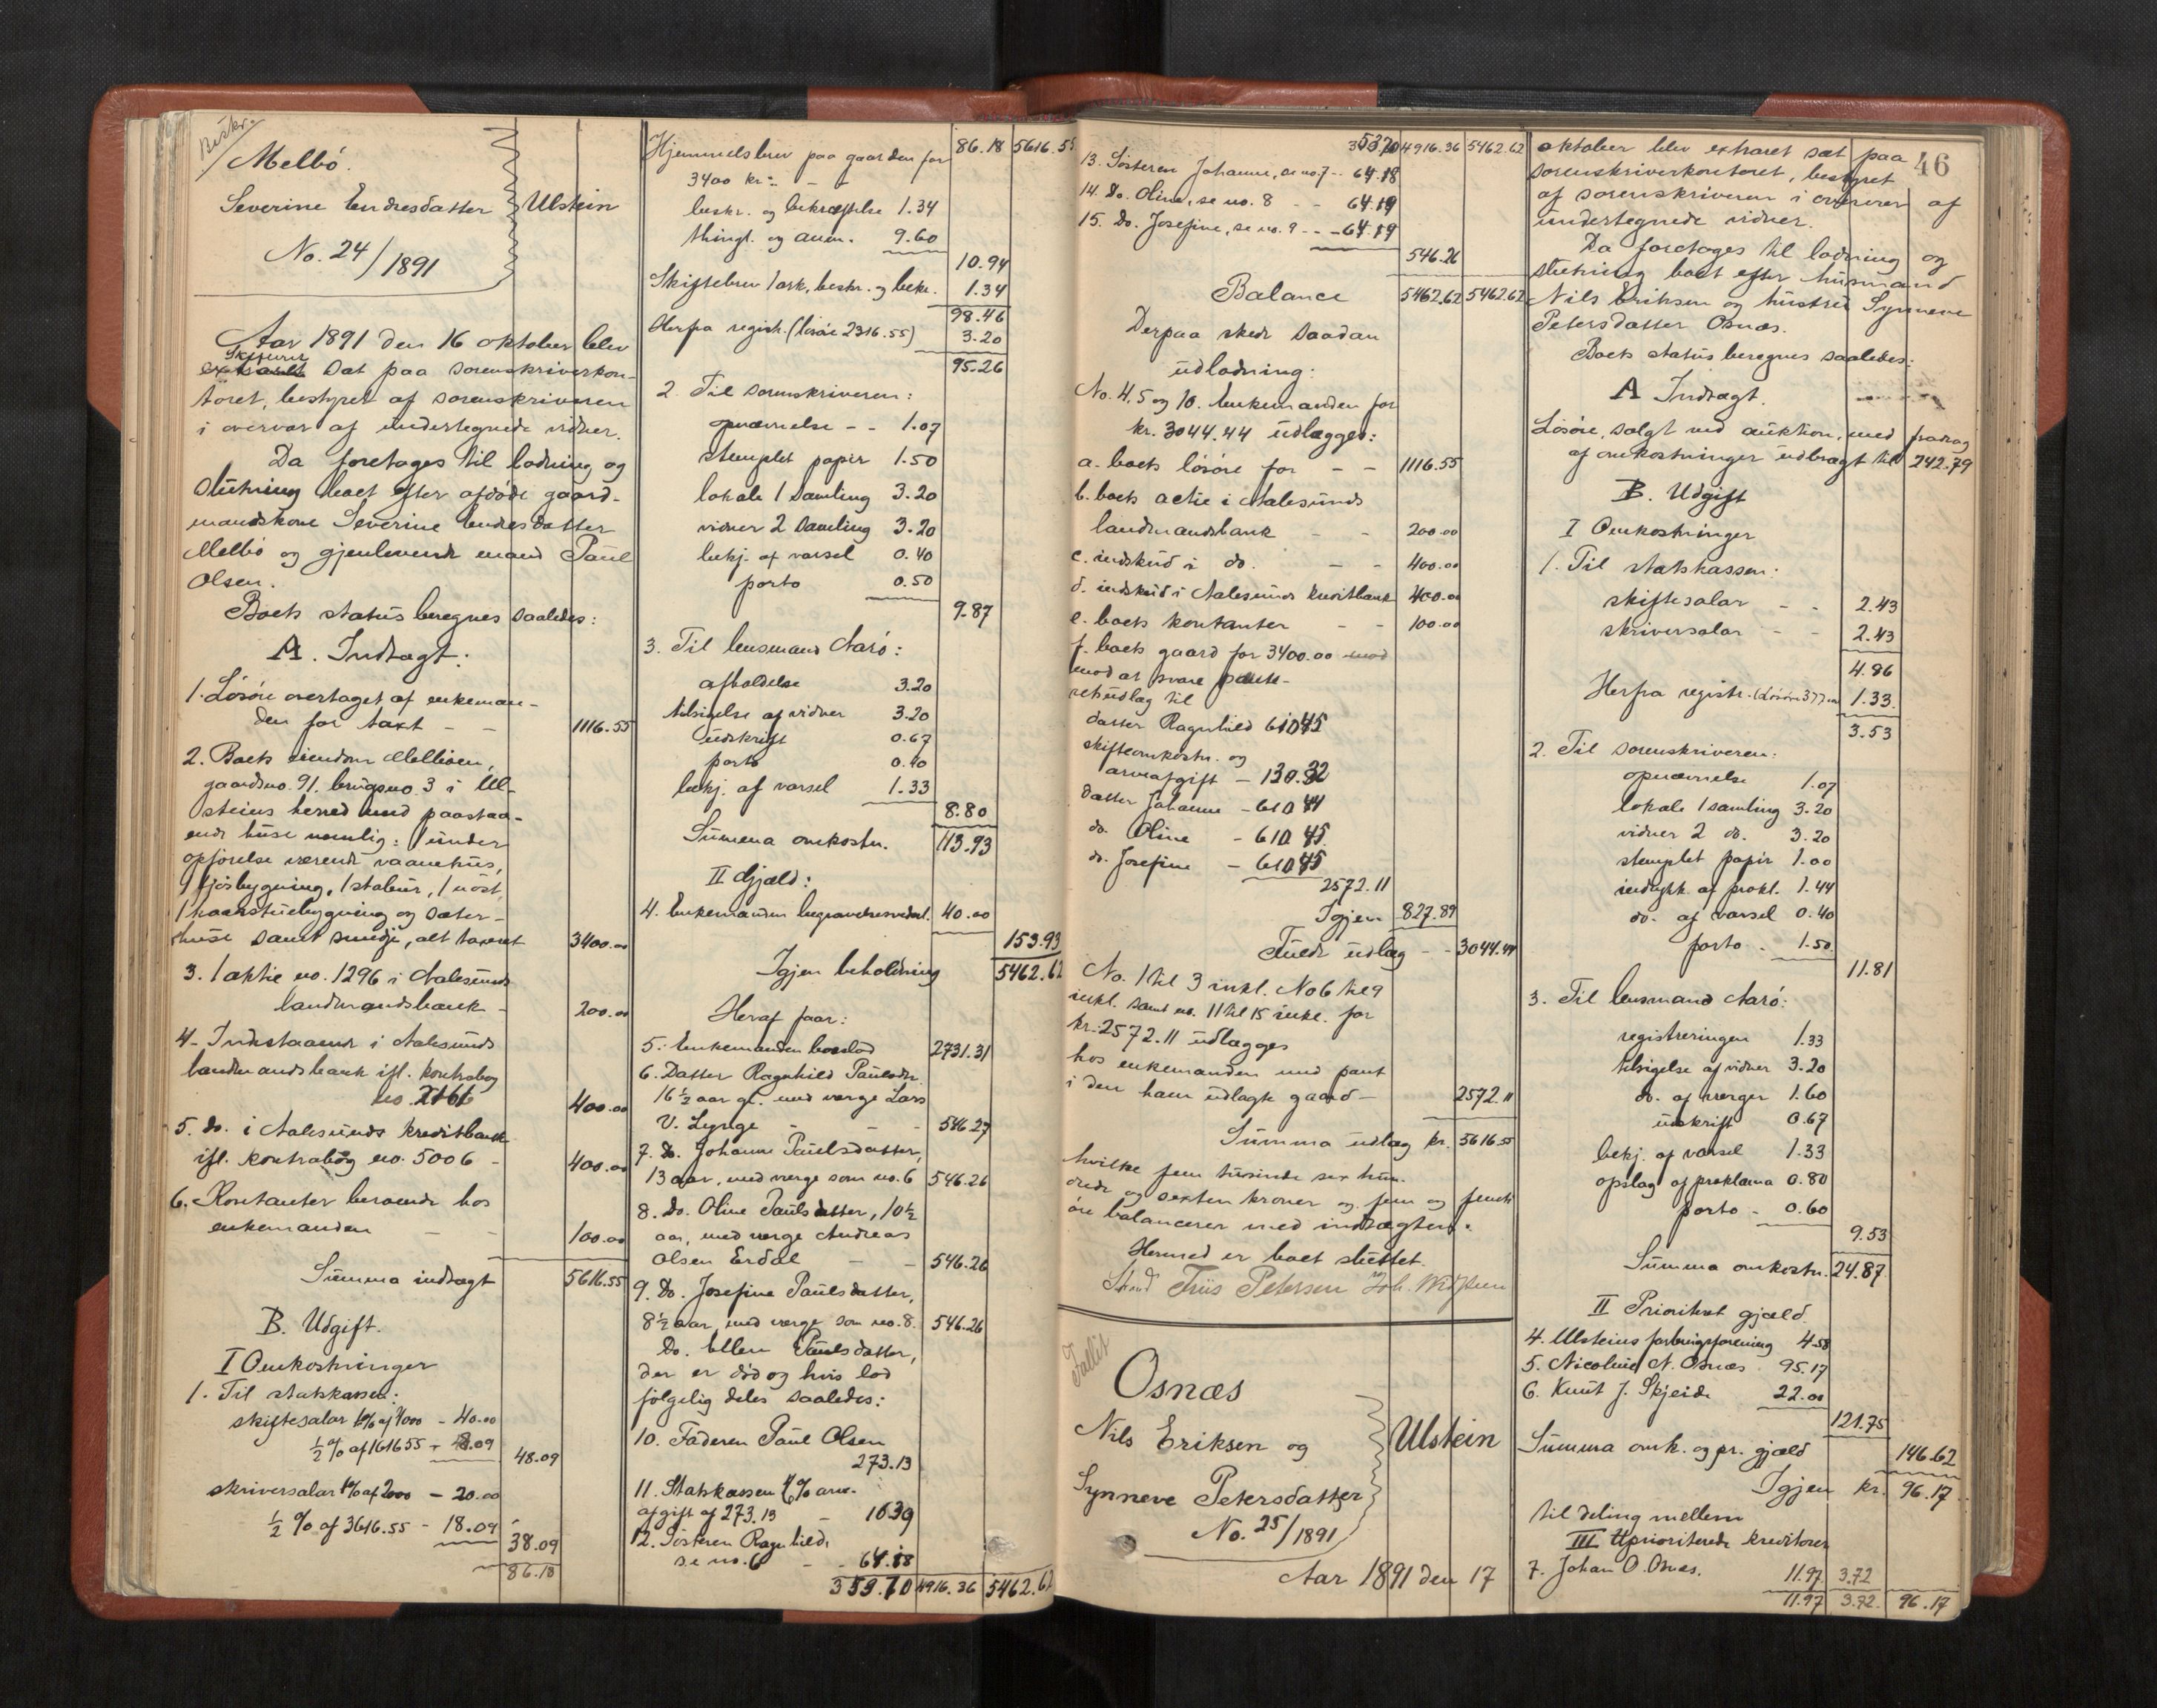 Beskr.
Melbö.
Severine Endresdatter Ulstein
No. 24/1891
Aar 1891 den 16 oktober blev
skifteret sat paa sorenskriverkon-
toret, bestyret af sorenskriveren
i overvær af undertegnede vidner.
Da foretages til lodning og
slutning boet efter afdöde gaard-
mandskone Severine Endresdatter
Melbö og gjenlevende mand Paul
Olsen.
Boets status beregnes saaledes:
A. Indtægt:
1. Lösöre overtaget af enkeman-
den for taxt - - 1116.55
2. Boets eiendom Melbøen,
gaardsno. 91, brugsno. 3 i Ul-
steins herred med paastaa-
ende huse nemlig: 1 under
opförelse værende vaanehus,
1 fjösbygning, 1 stabur, 1 nöst,
1 kaarstuebygning og sæter-
huse samt smedje, alt taxeret 3400.00
3. 1 aktie no. 1296 i Aalesunds
landmandsbank - 200.00
4. Indestaaende i Aalesunds
landmandsbank ifl. kontrabog
no. 2166 400.00
5. do. i Aalesunds kreditbank
ifl. kontrabog no. 5006 - 400.00
6. Kontanter beroende hos
enkemanden - - 100.00
Summa indtægt 5616.55
B. Udgift.
I Omkostninger
1. Til statskassen:
skiftesalar 1% af 4000 - 40.00
½ % af 1616.55 - 8.09 48.09
skriversalar 1% af 2000 - 20.00
½ % af 3616.55 - 18.09 38.09
86.18
Hjemmelsbrev paa gaarden for 86.18 5616.55
3400 kr: - -
beskr. og bekræftelse 1.34
thingl. og anm. 9.60
10.94
Skiftebrev 1 ark, beskr. og bekr. 1.34
98.46
Herfra registr. (lösöre 2316.55) 3.20
95.26
2. Til sorenskriveren:
opnævnelse - - 1.07
stemplet papir 1.50
lokale 1 samling 3.20
vidner 2 samling 3.20
bekj. af varsel 0.40
porto 0.50
9.87
3. Til lensmand Aarö:
afholdelse 3.20
tilsigelse af vidner 3.20
udskrift 0.67
porto 0.40
bekj. af varsel 1.33
8.80
Summa omkostn. 113.93
II Gjæld:
4. Enkemanden begravelsesvederl. 40.00
153.93
Igjen beholdning 5462.62
Heraf faar:
5. Enkemanden boeslod 2731.31
6. Datter Ragnhild Paulsdtr.
16½ aar gl. med verge Lars
V. Lynge - - - 546.27
7. Do. Johanne Paulsdatter,
13 aar, med verge som no. 6 546.26
8. Do. Oline Paulsdatter, 10½
aar, med verge Andreas
Olsen Erdal - - 546.26
9. Do. Josefine Paulsdatter,
8½ aar, med verge som no. 8. 546.26
Do. Ellen Paulsdatter,
der er död og hvis lod
fölgelig deles saaledes:
10. Faderen Paul Olsen
273.13
11. Statskassen 6% arve-
afgift af 273.13 - 16.39
12. Sösteren Ragnhild,
se no. 6 - - 64.18
353.70 4916.36 5462.62
353.70 4916.36 5462.62
13. Sösteren Johanne, se no. 7 - - 64.18
14. Do. Oline, se no. 8 - - 64.19
15. Do. Josefine, se no. 9 - - 64.19
546.26
Balance 5462.62 5462.62
Derpaa skede saadan
udlodning:
No. 4, 5 og 10. Enkemanden for
kr. 3044.44 udlægges:
a. boets lösöre for - - 1116.55
b. boets actie i Aalesunds
landmandsbank - - 200.00
c. indskud i do. - - 400.00
d. indskud i Aalesunds kreditbank 400.00
e. boets kontanter - - 100.00
f. boets gaard for 3400.00 mod
mod at svare pante-
retsudlæg til
datter Ragnhild 610.45
skifteomkostn. og
arveafgift - 130.32
datter Johanne - 610.44
do. Oline - 610.45
do. Josefine - 610.45
2572.11
Igjen 827.89
Fuldt udlæg - - 3044.44
No. 1 til 3 inkl. No 6 til 9
inkl. samt no. 11 til 15 inkl. for
kr. 2572.11 udlægges
hos enkemanden med pant
i den ham udlagte gaard - 2572.11
Summa udlæg kr. 5616.55
hvilke fem tusinde sex hun-
drede og sexten kroner og fem og femti
öre balancerer med indtægten.
Hermed er boet sluttet.
Friis Petersen Joh.
Fallit
Osnæs
Nils Eriksen og Ulstein
Synneve Petersdatter
No. 25/1891
Aar 1891 den 17
46
oktober blev extraret sat paa
sorenskriverkontoret, bestyret
af sorenskriveren i overvær af
undertegnede vidner.
Da foretages til lodning og
slutning boet efter husmand
Nils Eriksen og hustru Synneve
Petersdatter Osnæs.
Boets status beregnes saaledes:
A Indtægt.
Lösöre, solgt ved auktion, med fradrag
af omkostninger udbragt til 242.79
B. Udgift
I Omkostninger
1. Til statskassen:
skiftesalar - - 2.43
skriversalar - - 2.43
4.86
Herfra registr. (Lösöre 377.00 1.33
3.53
2. Til sorenskriveren:
opnævnelse 1.07
lokale 1 samling 3.20
vidner 2 do. 3.20
stemplet papir 1.00
indrykk. af prokl. 1.44
do. af varsel 0.40
porto - 1.50
11.81
3. Til lensmand Aarö:
registreringen 1.33
tilsigelse af vidner 3.20
do. af verger 1.60
udskrift 0.67
bekj. af varsel 1.33
opslag af proklama 0.80
porto - 0.60
9.53
Summa omkostn. 24.87
II Prioritert gjæld.
4. Ulsteins forbrugsforening 4.58
5. Nicoline N. Osnæs 95.17
6. Knut J. Skjeide 22.00
121.75
Summa omk. og pr. gjæld 146.62
Igjen kr. 96.17
til deling mellem
III Uprioriterede kreditorer
7. Johan O. Osnæs. 11.97 3.72
11.97 3.72. 96.17